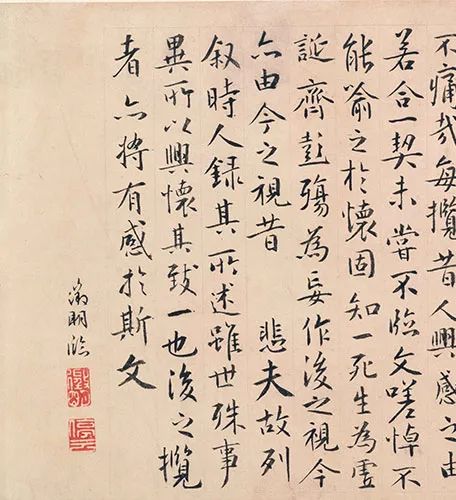 不痛哉每攬昔人興感之由
若合一契未嘗不臨文嗟悼不
能喻之於懷固知一死生為虛
誕齊彭殤為妄作後之視今
亦由今之視昔　悲夫故列
叙時人錄其所述雖世殊事
異所以興懷其致一也後之攬
者亦將有感於斯文
徵明臨
徵明